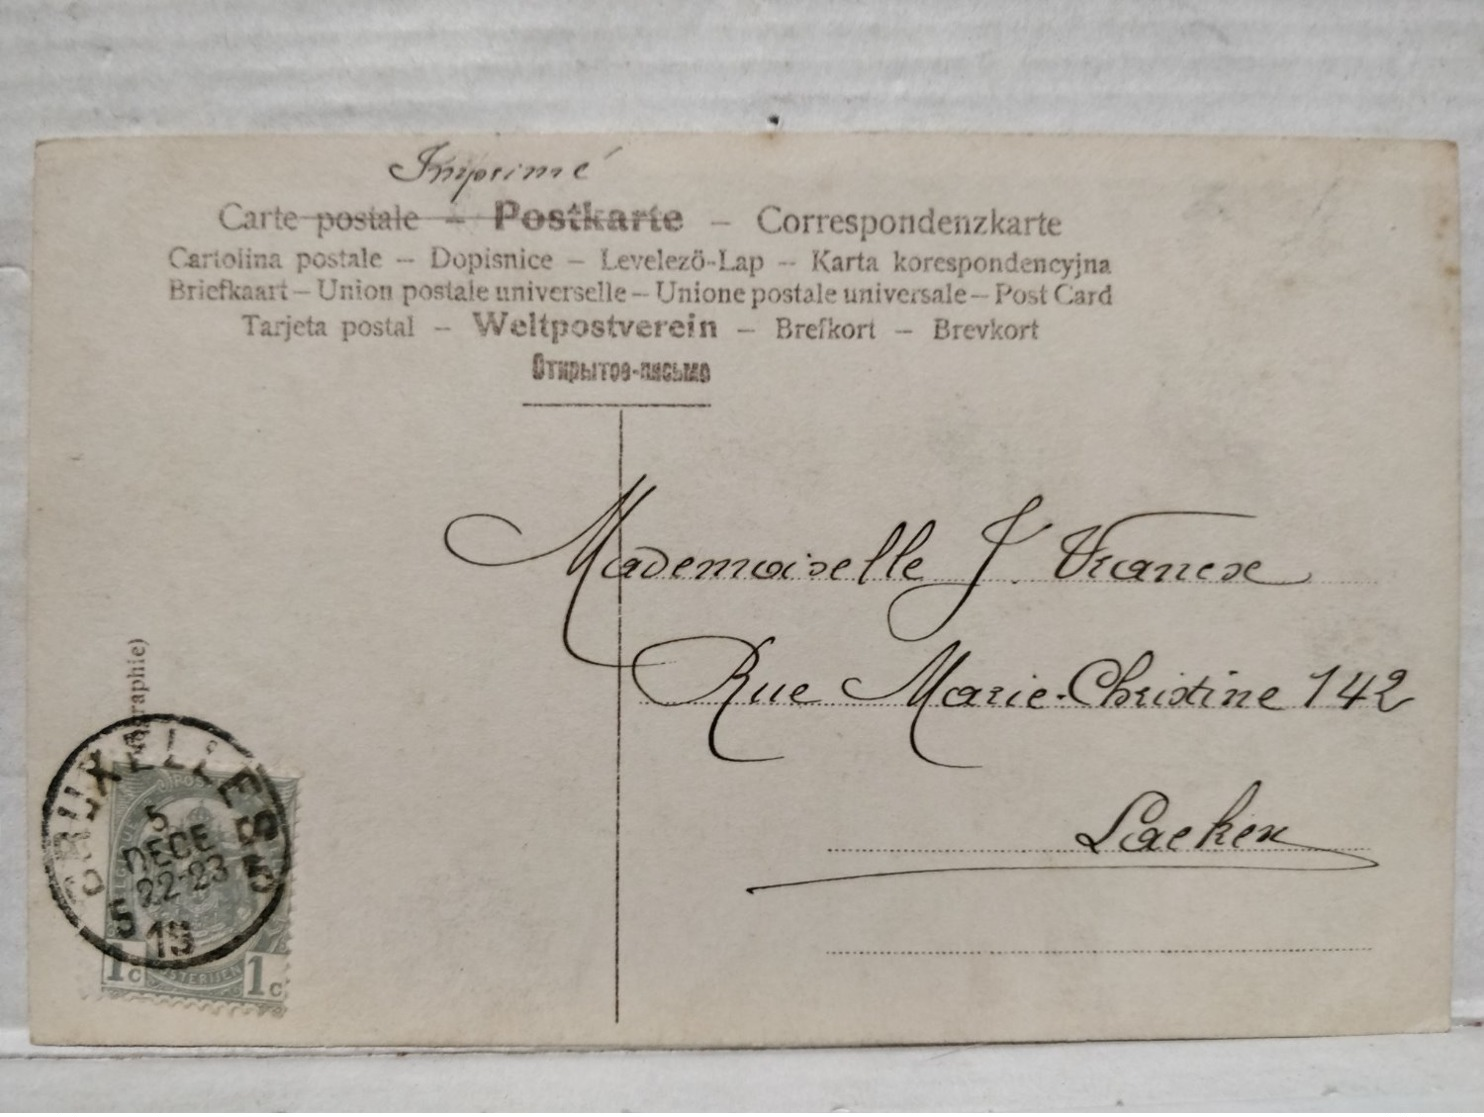 Imprimé
Carte postale – Postkarte – Correspondenzkarte
Cartolina postale – Dopisnice – Levelező-Lap – Karta korespondencyjna
Briefkaart – Union postale universelle – Unione postale universale – Post Card
Tarjeta postal – Weltpostverein – Brefkort – Brevkort
Открытое-письмо
Mademoiselle J. Vranex
Rue Marie-Christine 142
Laeken
graphie)
BRUXELLES
5
DECE
22-23
1c 1c